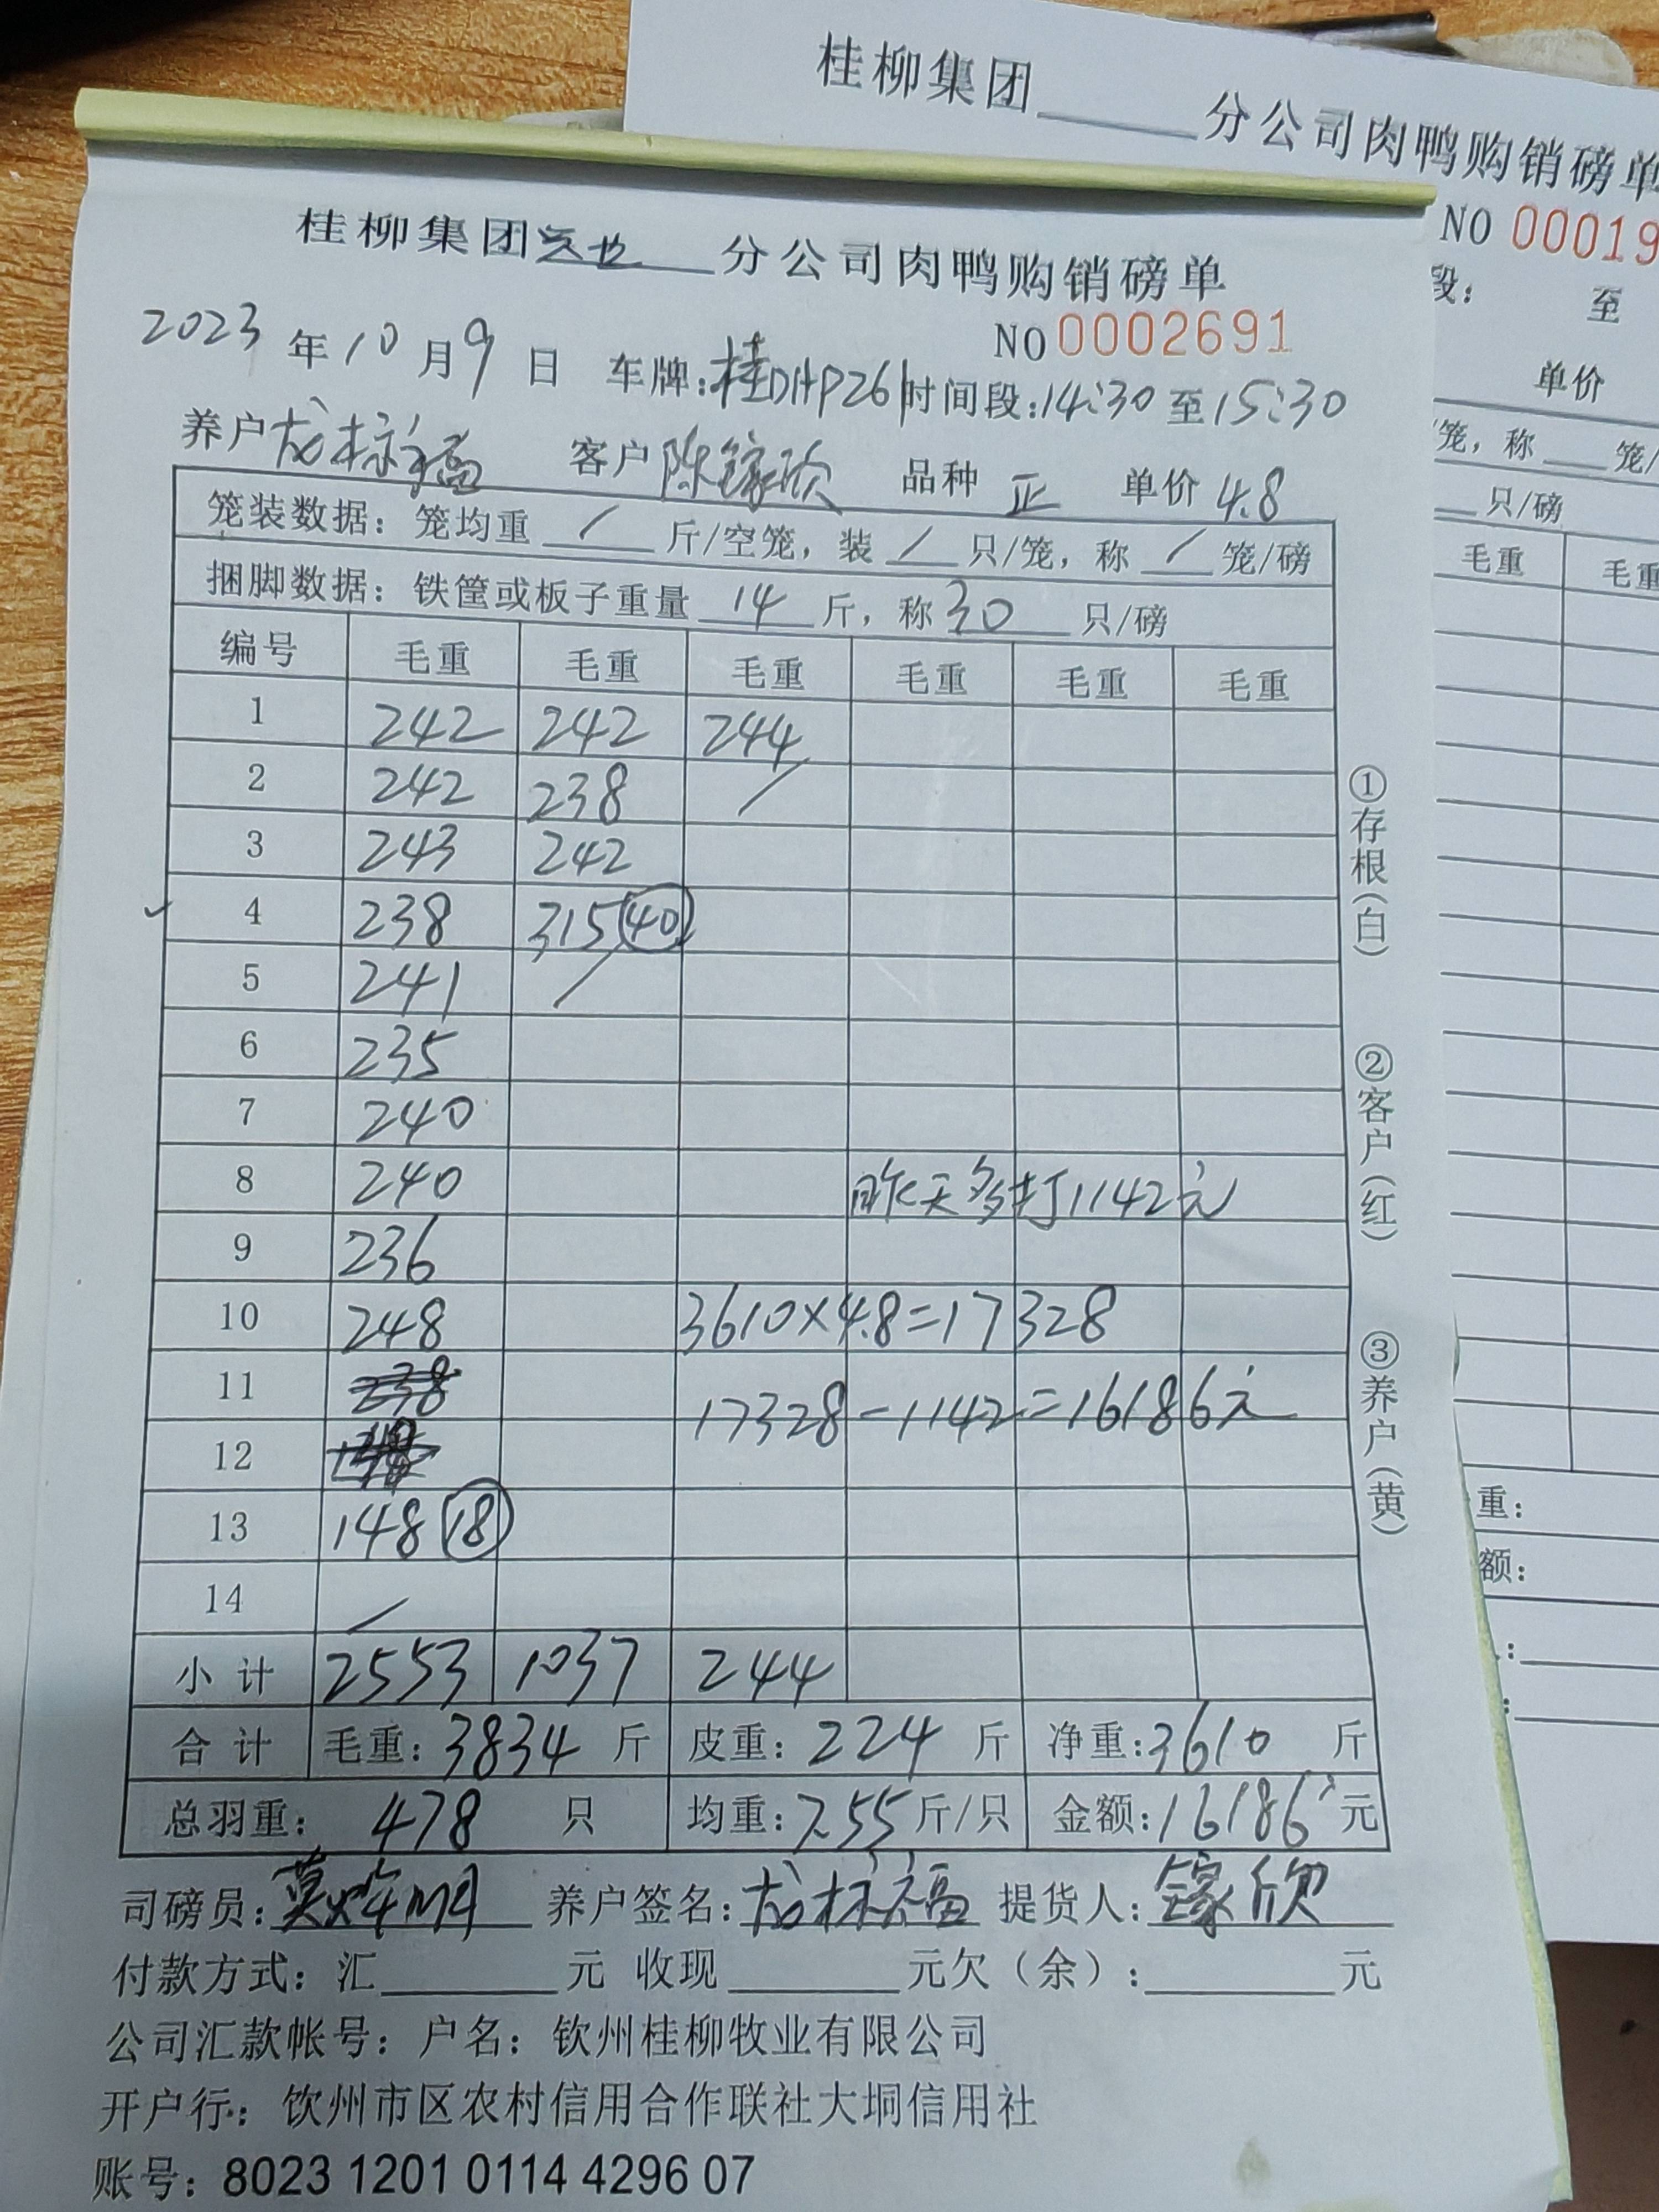 桂柳集团______分公司肉鸭购销磅单
NO 00019
段: 至
单价
笼，称___笼/
只/磅
毛重 毛重
重:
额:
桂柳集团灵山分公司肉鸭购销磅单
NO 0002691
2023年10月9日 车牌:桂DHP261 时间段:14:30至15:30
养户 龙标福 客户 陈镓欣 品种 正 单价 4.8
笼装数据: 笼均重 / 斤/空笼，装 / 只/笼，称 / 笼/磅
捆脚数据: 铁筐或板子重量 14 斤，称 30 只/磅
编号 毛重 毛重 毛重 毛重 毛重 毛重
1 242 242 244
2 242 238 /
3 243 242
4 238 315 (40)
5 241 /
6 235
7 240
8 240 昨天多打1142元
9 236
10 248 3610×4.8=17328
11 238 17328-1142=16186元
12
13 148 (18)
14 /
小计 2553 1037 244
合计 毛重: 3834 斤 皮重: 224 斤 净重: 3610 斤
总羽重: 478 只 均重: 7.55 斤/只 金额: 16186 元
司磅员: 养户签名: 龙标福 提货人: 镓欣
付款方式: 汇______元 收现______元欠（余）:______元
公司汇款帐号: 户名: 钦州桂柳牧业有限公司
开户行: 钦州市区农村信用合作联社大垌信用社
账号: 8023 1201 0114 4296 07
①存根(白)
②客户(红)
③养户(黄)